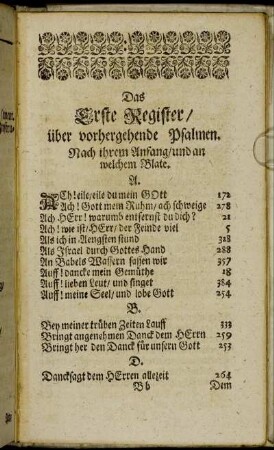 Das
Erste Register/
über vorhergehende Psalmen.
Nach ihrem Anfang/ und an
welchem Blate.
A.
ACh! eile/ eil du mein GOtt 172
Ach! Gott mein Ruhm/ ach schweige 278
Ach HErr! warumb entfernst du dich? 21
Ach! wie ist/ HErr/ der Feinde viel 5
Als ich in Aengsten stund 328
Als Israel durch Gottes Hand 288
An Babels Wassern sassen wir 357
Auff! dancke mein Gemüthe 18
Auff! lieben Leut/ und singet 384
Auff! meine Seel/ und lobe Gott 254
B.
Bey meiner trüben Zeiten Lauff 333
Bringt angenehmen Danck dem HErrn 259
Bringt her den Danck für unsern Gott 253
D.
Dancksagt dem HErren allezeit 264
Bb Dem